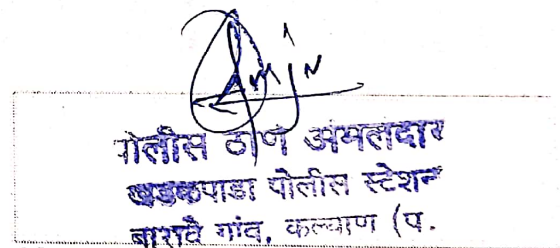 पोलीस ठाणे अंमलदार
खडकपाडा पोलीस स्टेशन
बारावे गांव, कल्याण (प.